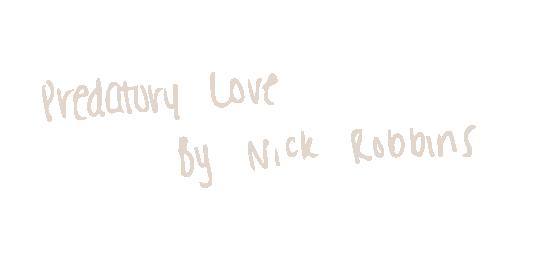 Predatory Love
By Nick Robbins